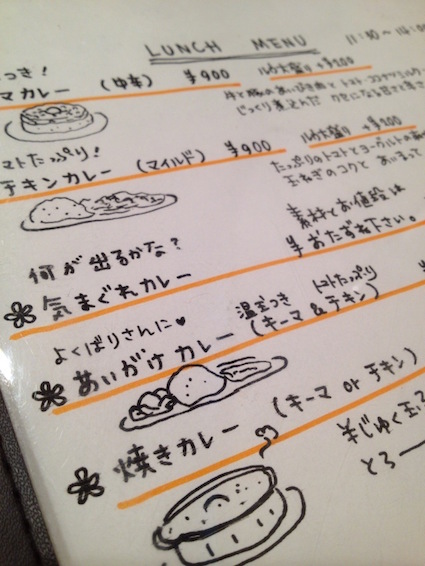 LUNCH MENU 11:30 ~ 14:00
つき!
マカレー (中辛) ¥900 ルウ大盛り +¥200
じっくり煮込んだ クセになる甘さと
マトたっぷり!
チキンカレー (マイルド) ¥900 ルウ大盛り +¥200
たっぷりのトマトとヨーグルトの
玉ねぎのコクと あいまって
何が出るかな?
気まぐれカレー
素材とお値段は
おたずね下さい。
よくばりさんに♥
あいがけカレー (キーマ & チキン)
温玉つき トマトたっぷり
焼きカレー (キーマ or チキン)
半じゅく玉
とろー